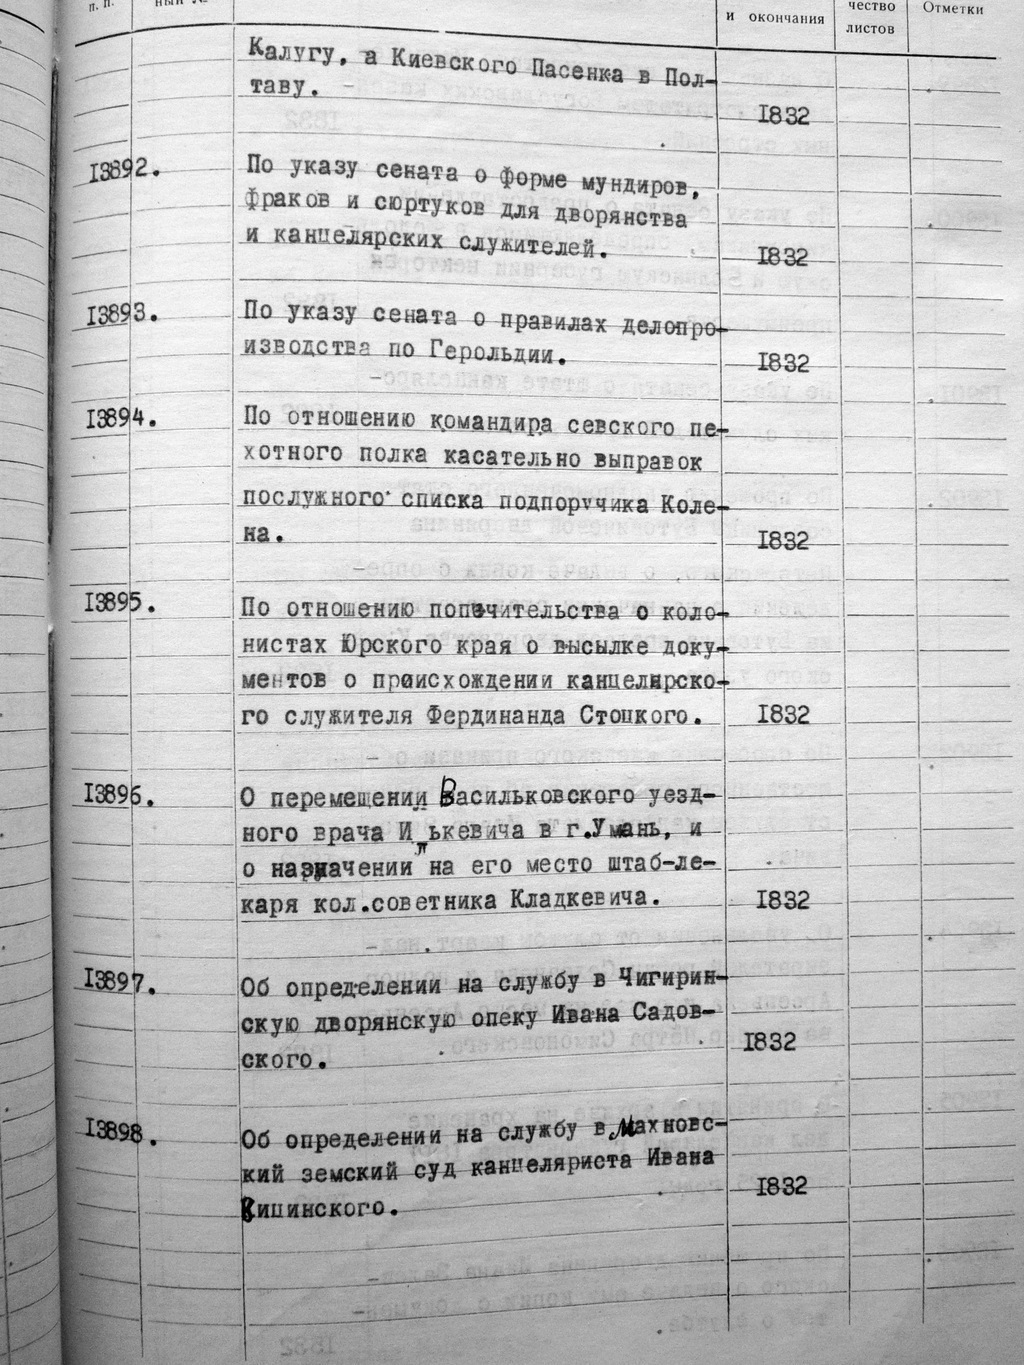 п. п.
ный №
и окончания
чество
листов
Отметки
Калугу, а Киевского Пасенка в Пол-
таву.
1832
13892.
По указу сената о форме мундиров,
фраков и сюртуков для дворянства
и канцелярских служителей.
1832
13893.
По указу сената о правилах делопро-
изводства по Герольдии.
1832
13894.
По отношению командира севского пе-
хотного полка касательно выправок
послужного списка подпоручика Коле-
на.
1832
13895.
По отношению попечительства о коло-
нистах Юрского края о высылке доку-
ментов о происхождении канцелярско-
го служителя Фердинанда Стоцкого.
1832
13896.
О перемещении Васильковского уезд-
ного врача Илькевича в г.Умань, и
о назначении на его место штаб-ле-
каря кол.советника Кладкевича.
1832
13897.
Об определении на службу в Чигирин-
скую дворянскую опеку Ивана Садов-
ского.
1832
13898.
Об определении на службу в Махновс-
кий земский суд канцеляриста Ивана
Вишинского.
1832